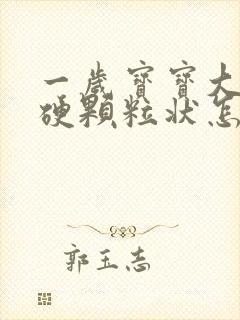 一歲寶寶大
硬顆粒狀怎
郭玉志